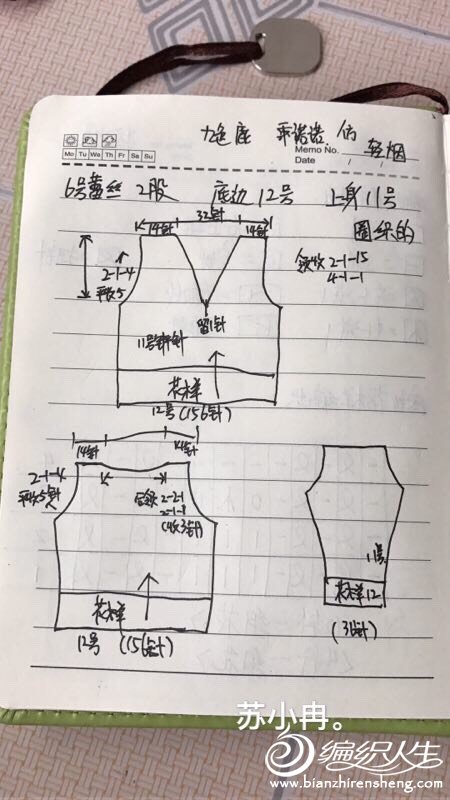 Mo Tu We Th Fr Sa Su
Memo No.
Date
轻烟
6号蕾丝 2股 底边12号 上身11号
圈织的
14针 32针 14针
领收 2-1-15
4-1-1
2-1-4
平收5
留1针
11号平针
花样
12号(156针)
14针 14针
2-1-4
平收5针
后领 2-2-1
2-1-1
花样
12号 (156针)
11号
花样12
(36针)
苏小冉。
编织人生
www.bianzhirensheng.com